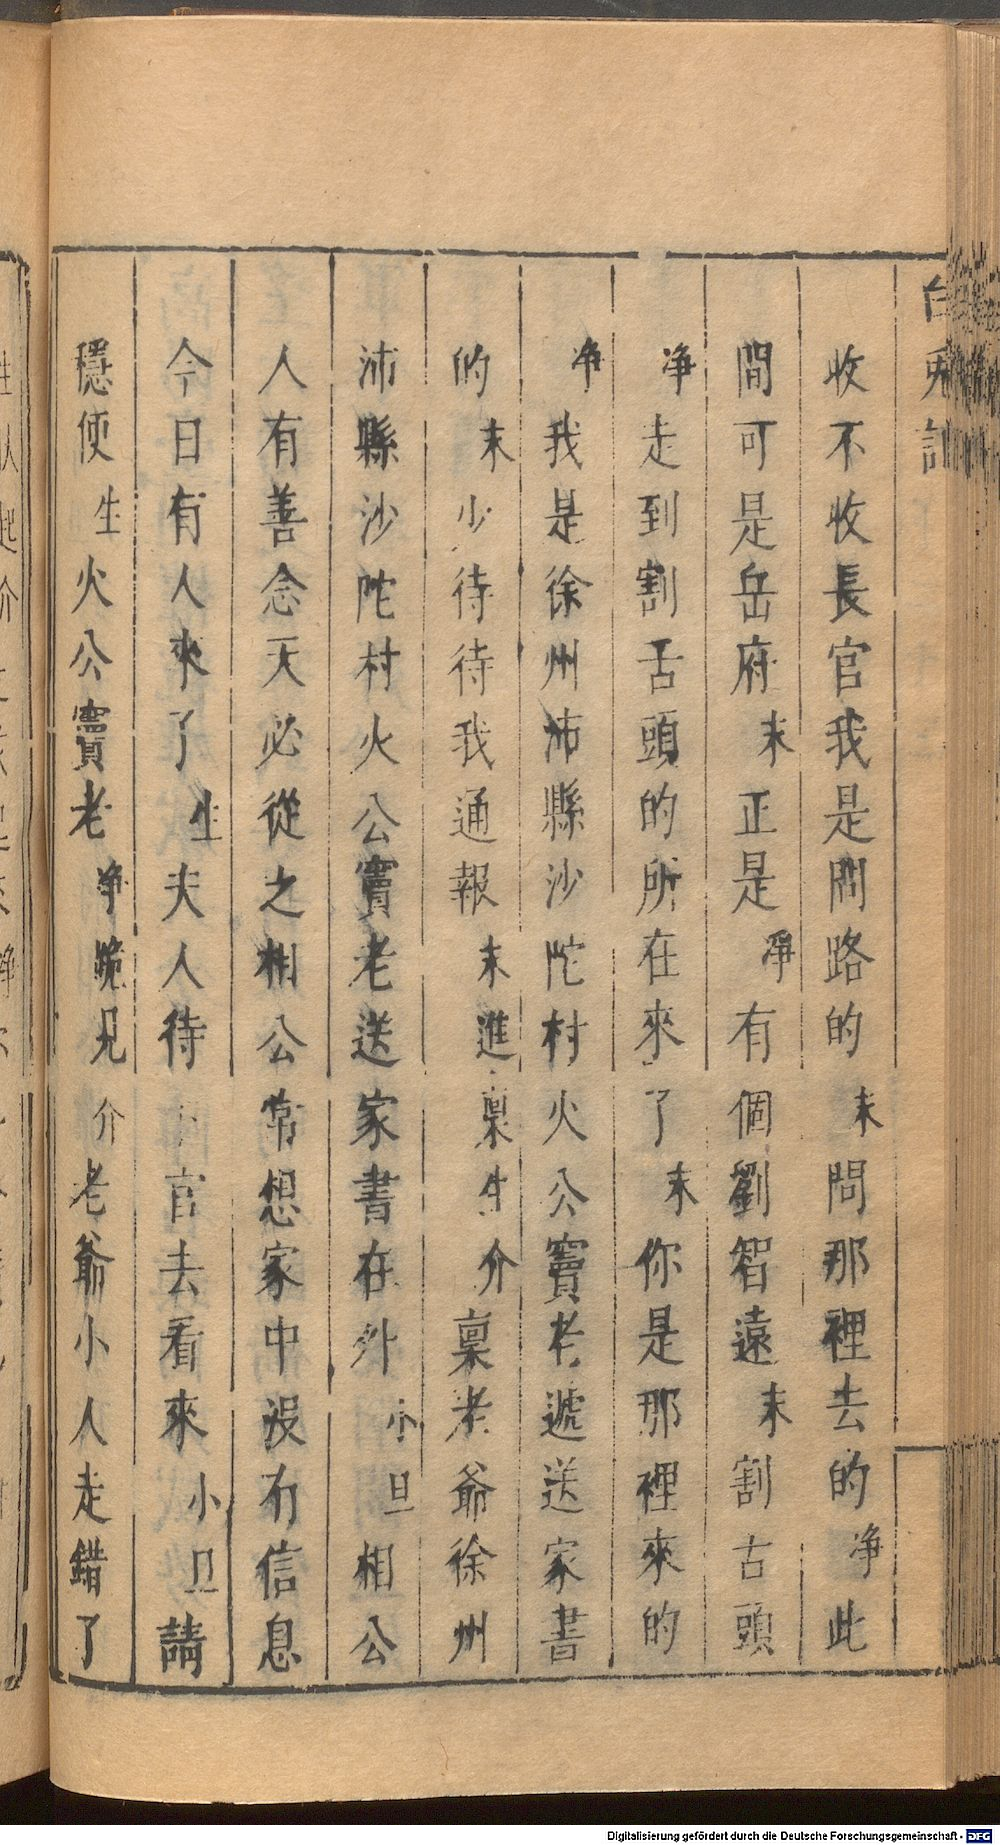 白兎記
收不收長官我是問路的末問那裡去的净此
間可是岳府末正是淨有個劉智遠末割古頭
净走到割舌頭的所在來了末你是那裡來的
净我是徐州沛縣沙陀村火公竇老遞送家書
的末少待待我通報末進稟生介稟老爺徐州
沛縣沙陀村火公竇老送家書在外小旦相公
人有善念天必從之相公常想家中沒有信息
今日有人來了生夫人待下官去看來小旦請
穩便生火公竇老净跪見介老爺小人走錯了
Digitalisierung gefördert durch die Deutsche Forschungsgemeinschaft - DFG